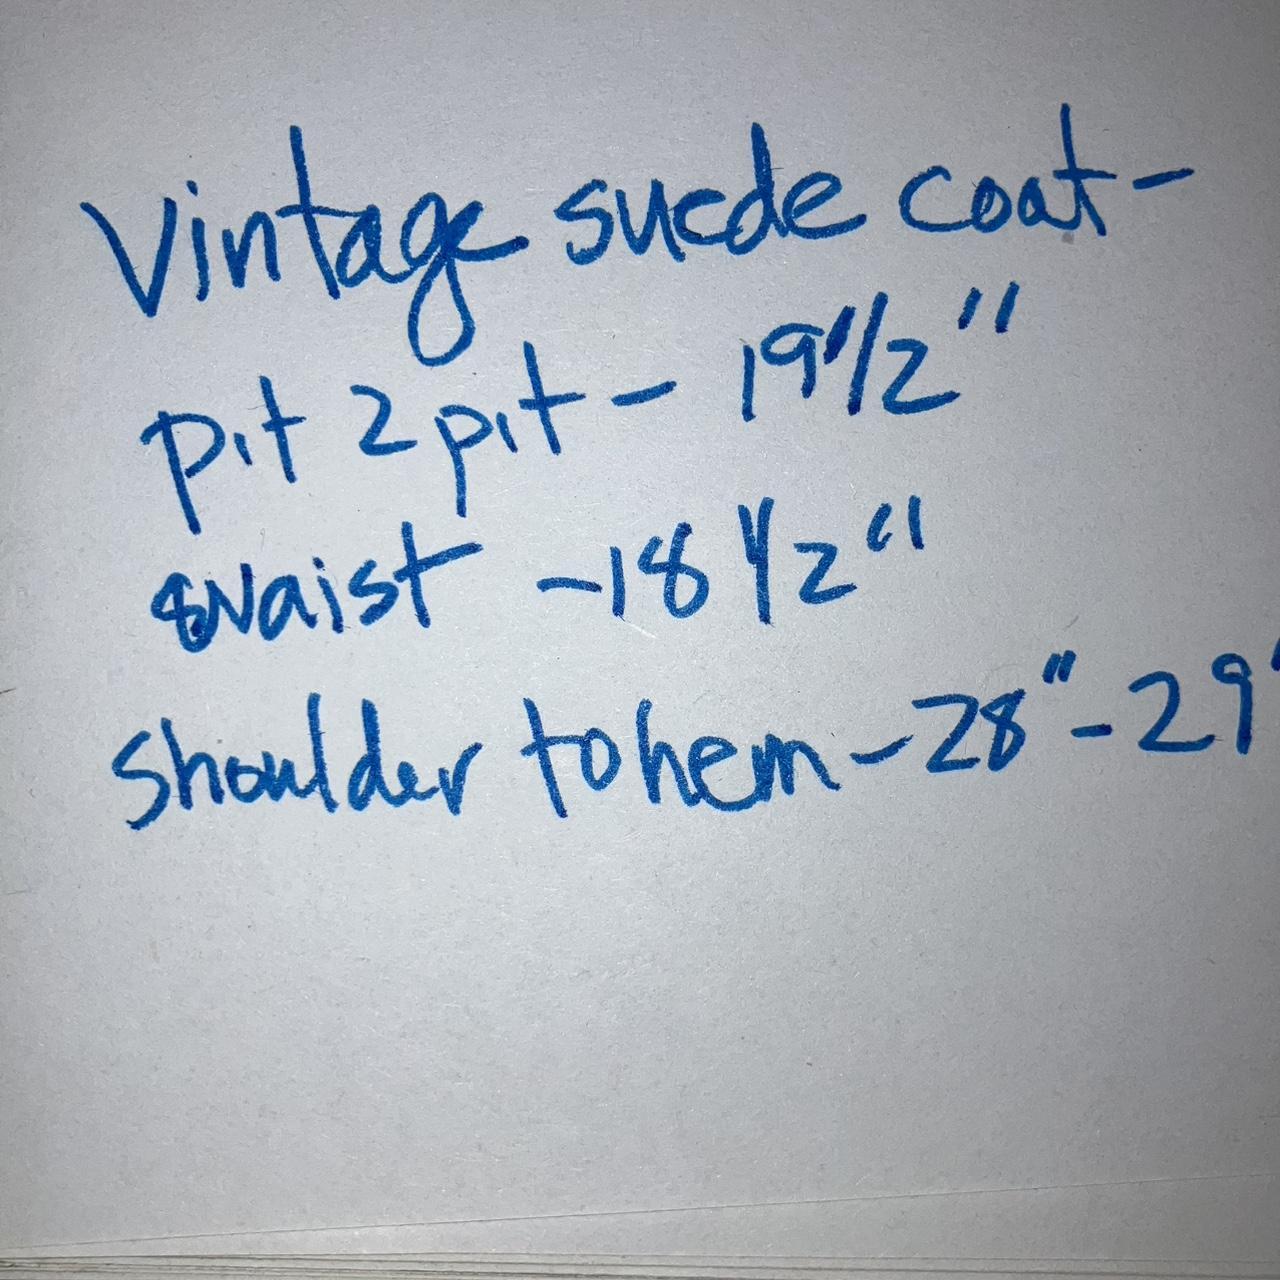 Vintage suede coat-
pit 2 pit - 19 1/2"
waist - 18 1/2"
shoulder to hem - 28" - 29"